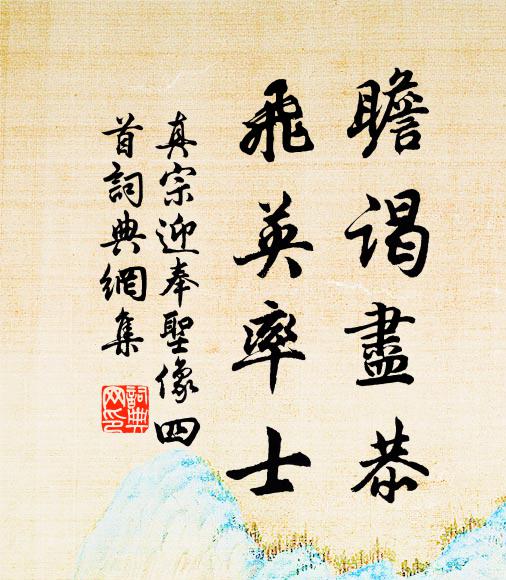 瞻谒盡恭
飛英率士
真宗迎奉聖像四
首詞典網集
詞典
网印